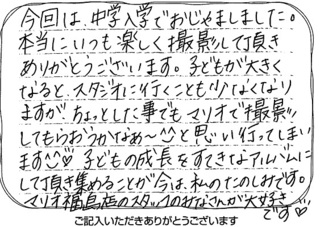 今回は、中学入学でおじゃまししました。
本当にいつも楽しく撮影して頂き
ありがとうございます。子どもが大きく
なると、スタジオに行くことも少なくなり
ますが、ちょっとした事でもマリオで撮影
してもらおうかなぁ〜^^と思い行ってしまい
ます^^♡ 子どもの成長をすてきなアルバムに
して頂き集めることが今は、私のたのしみです。
マリオ福島店のスタッフのみなさんが大好き
です♡
ご記入いただきありがとうございます